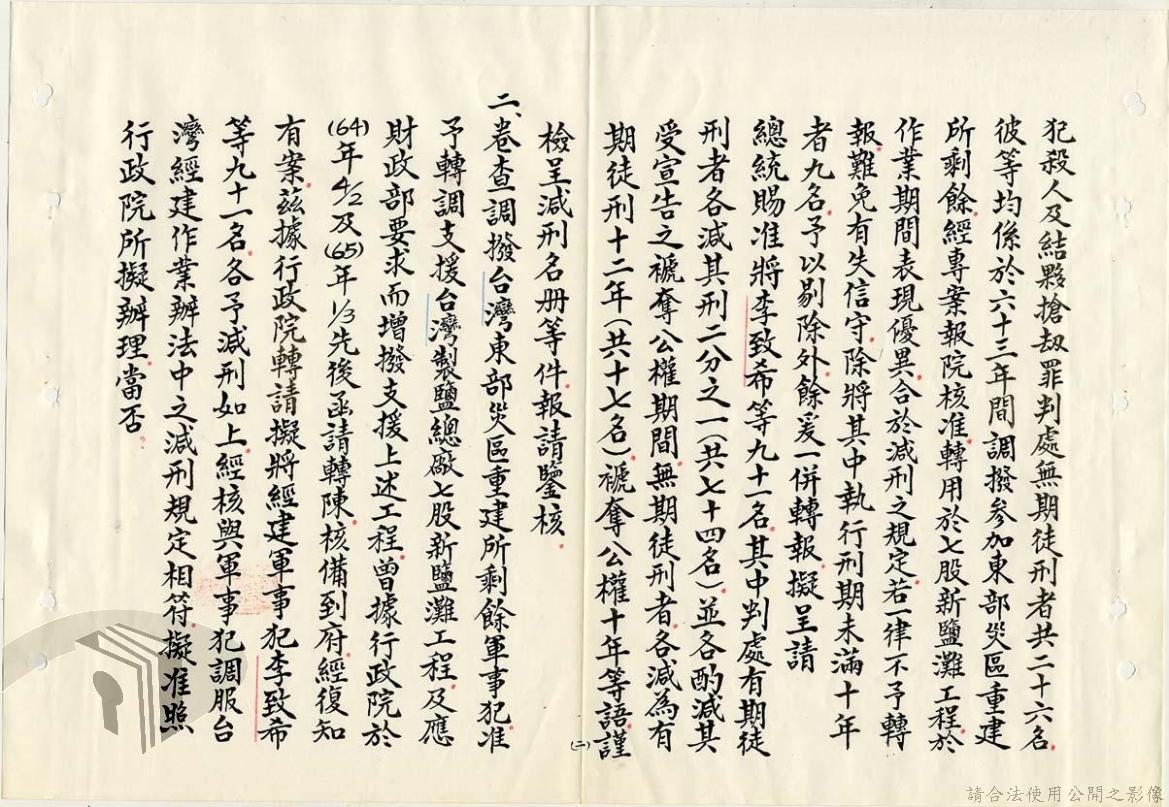 犯殺人及結夥搶刼罪判處無期徒刑者共二十六名.
彼等均係於六十三年間調撥參加東部災區重建
所剩餘.經專案報院核准.轉用於七股新鹽灘工程.於
作業期間表現優異.合於減刑之規定.若一律不予轉
報.難免有失信守.除將其中執行刑期未滿十年
者九名.予以剔除外.餘爰一併轉報.擬呈請
總統賜准將李致希等九十一名.其中判處有期徒
刑者各減其刑二分之一(共七十四名)並各酌減其
受宣告之褫奪公權期間.無期徒刑者.各減為有
期徒刑十二年(共十七名)褫奪公權十年等語.謹
檢呈減刑名册等件.報請鑒核.
二、卷查調撥台灣東部災區重建所剩餘軍事犯.准
予轉調支援台灣製鹽總廠七股新鹽灘工程.及應
財政部要求而增撥支援上述工程.曾據行政院於
(64)年4/2及(65)年1/3先後函請轉陳.核備到府.經復知
有案.茲據行政院轉請擬將經建軍事犯李致希
等九十一名.各予減刑如上.經核與軍事犯調服台
灣經建作業辦法中之減刑規定相符.擬准照
行政院所擬辦理.當否.
(二)
請合法使用公開之影像